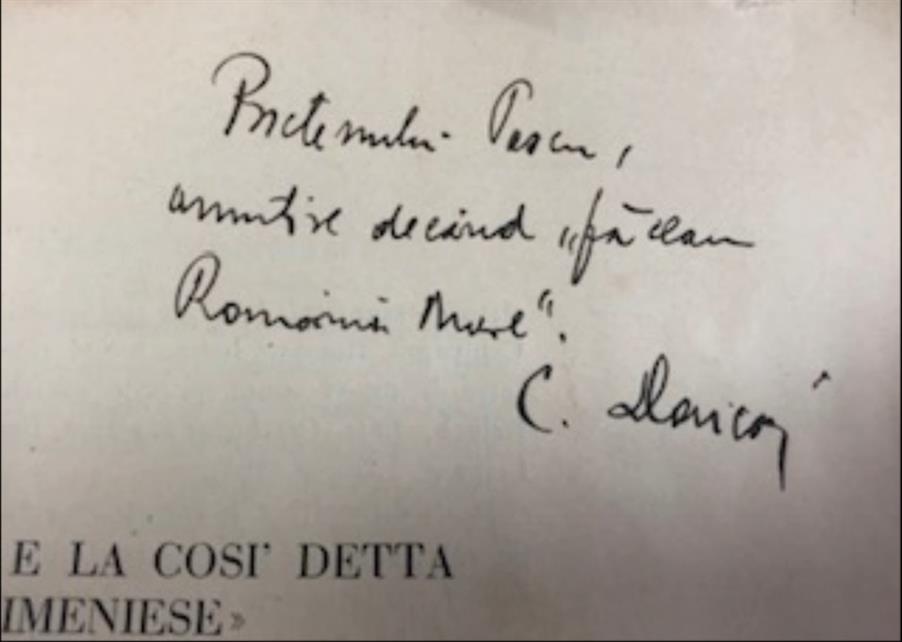 Prietenului Pascu,
amintire decând „făceam
România Mare”.
C. Daicoviciu
E LA COSI' DETTA
IMENIESE»